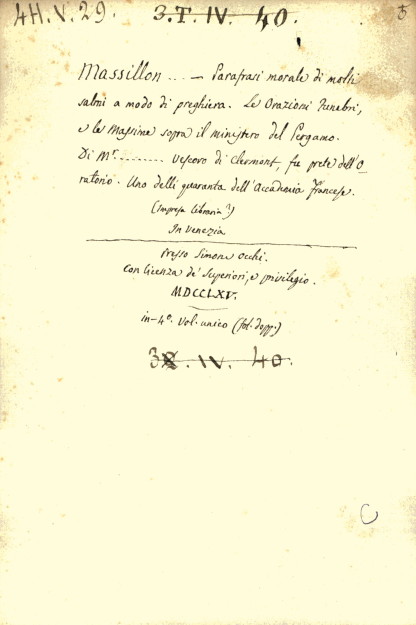 4H.V.29. 3.T.IV. 40.
Massillon ... — Parafrasi morale di molti
salmi a modo di preghiera. Le Orazioni funebri,
e le Massime sopra il ministero del Pergamo.
Di Mr ......... Vescovo di Clermont, fu prete dell'O
ratorio. Uno delli quaranta dell'Accademia Francese.
(Impresa libraria?)
In Venezia
Presso Simone Occhi.
Con licenza de' Superiori, e privilegio.
MDCCLXV.
in-4°. Vol. unico (fol. dopp.)
IV. 40.
C